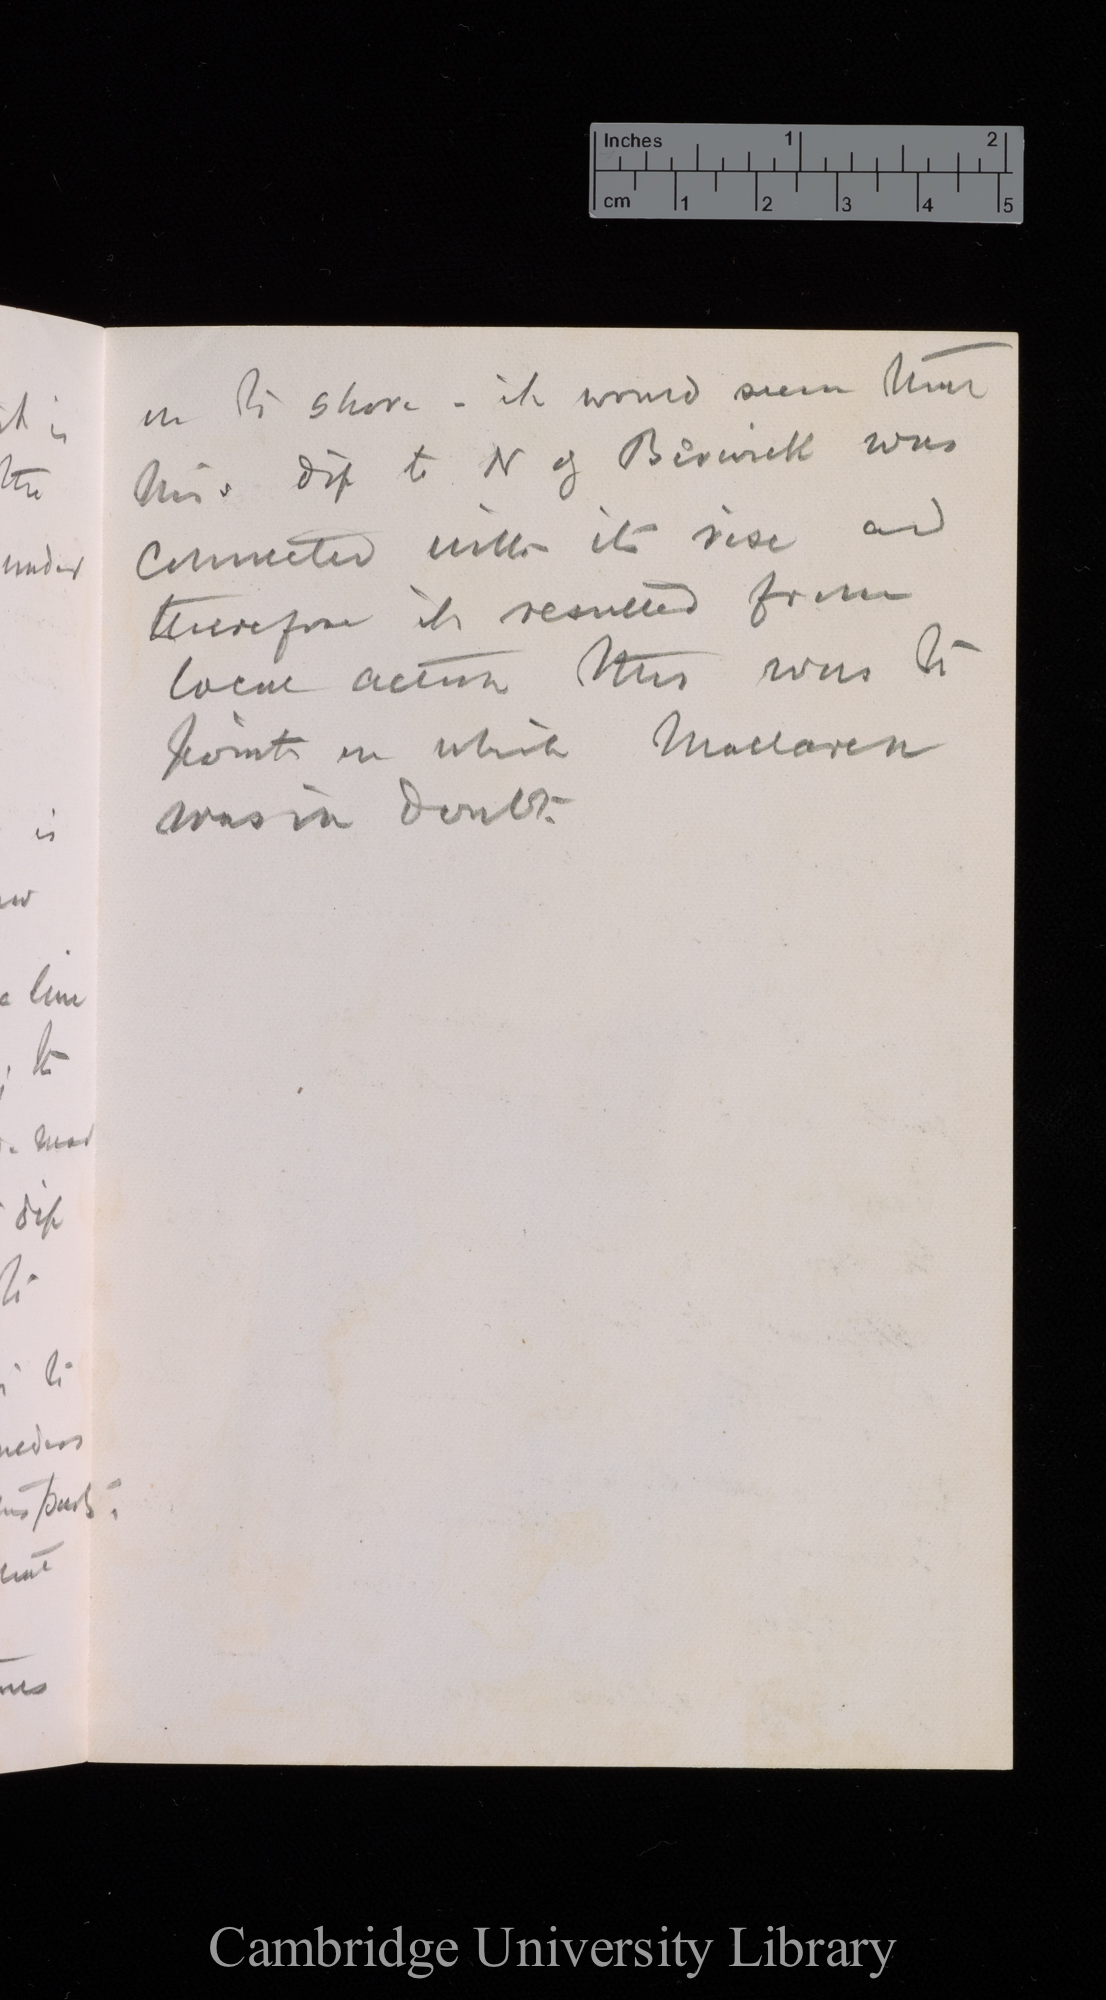 Inches 1 2
cm 1 2 3 4 5
on the shore - it would seem that
this dip to N of Berwick was
connected with its rise and
therefore it resulted from
local action this was the
point on which Maclaren
was in doubt.
it is
the
under
is
line
the
dip
the
the
Cambridge University Library